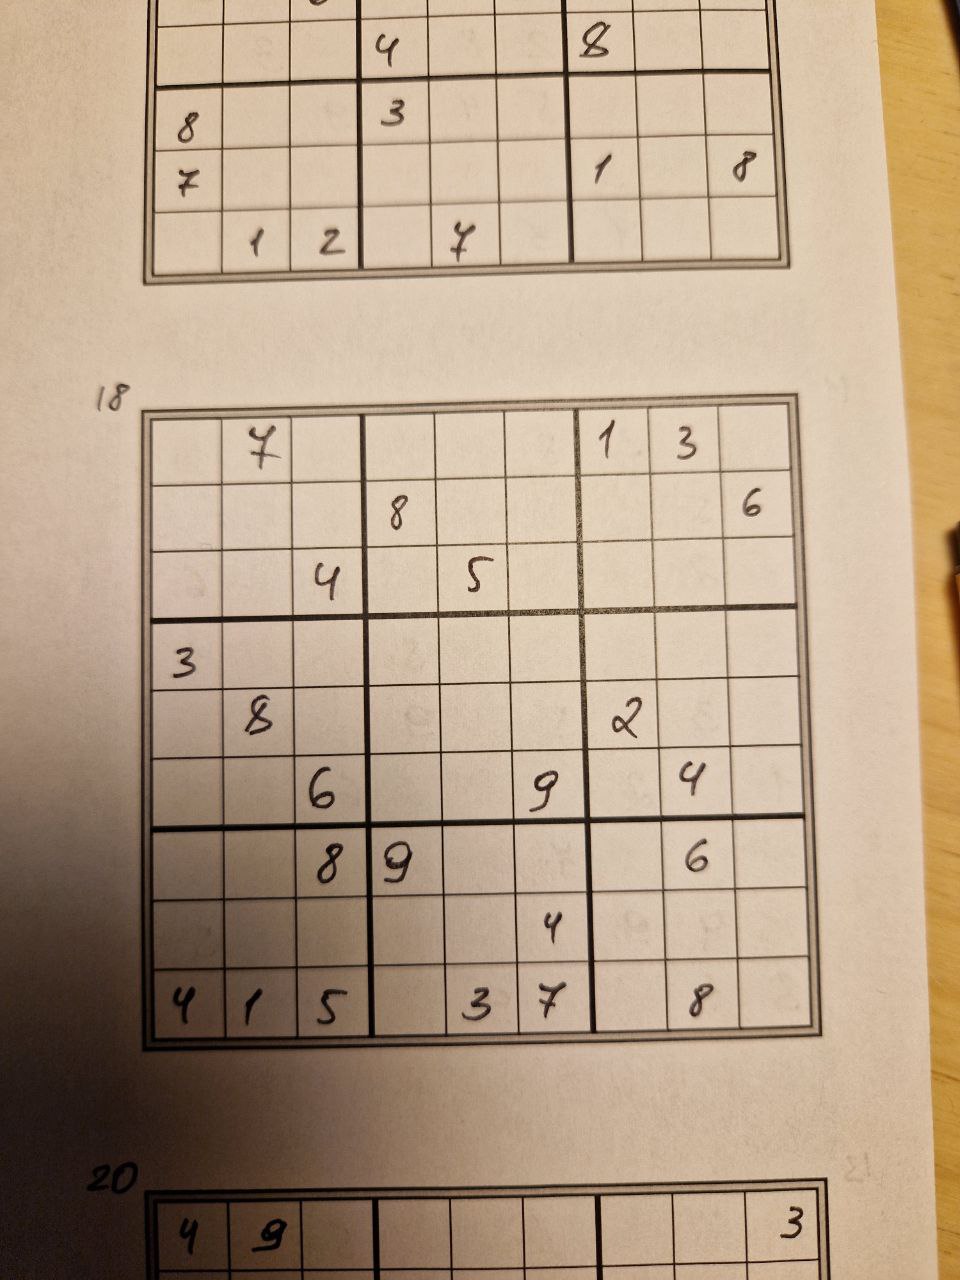 4 8
8 3
7 1 8
1 2 7
18
7 1 3
8 6
4 5
3
8 2
6 9 4
8 9 6
4
4 1 5 3 7 8
20
4 9 3